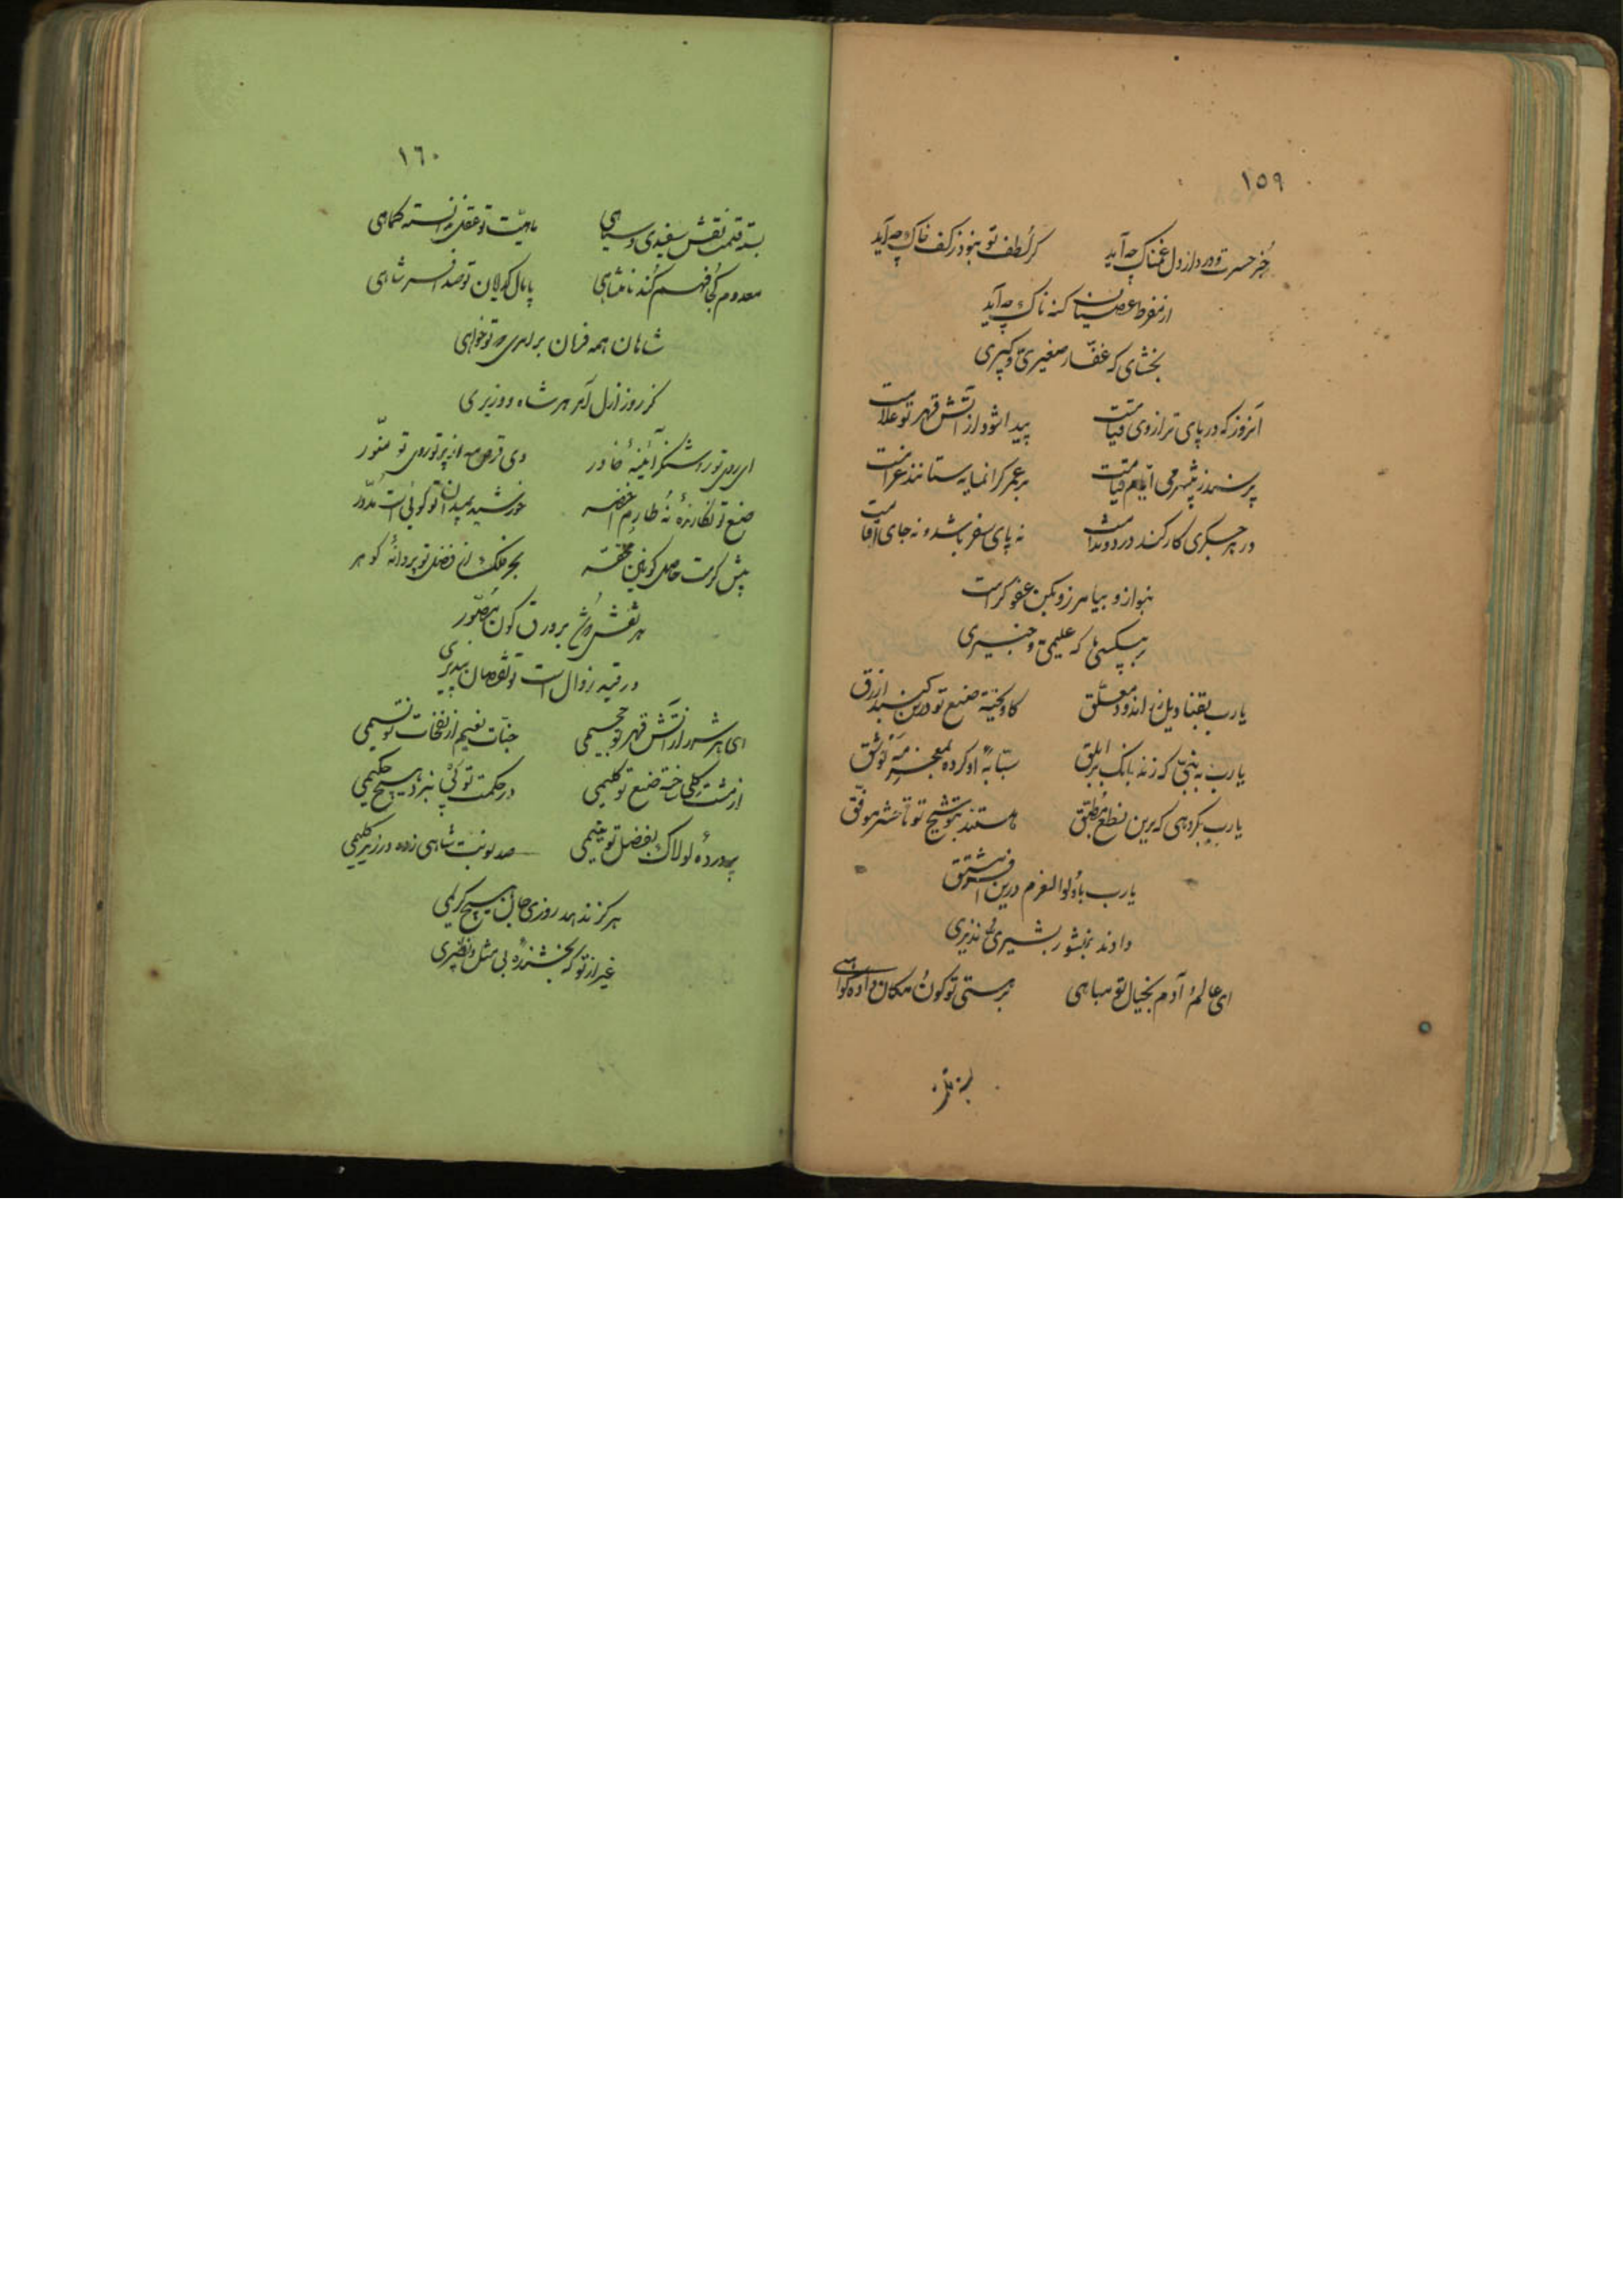 ١٥٩
جُز حسرت و درد از دل غمناک چه آید کر لُطف تو نبود ز کف خاک چه آید
از مفرط عصیان کنه ناک چه آید
بخشای که غفّار صغیری و کبیری
آنروز که در پای ترازوی قیامت پیدا شود از آتش قهر تو علامت
پرسند ز ایّام قیامت بر عمر کرانمایه ستانند غرامت
در هر جگری کار کند درد و ندامت نه پای سفر باشد و نه جای اقامت
بنواز و بیامرز و بکن عفو کرامت
بر بیکسی ما که علیمی و خبیری
یارب معلّق کاویخته صنع تو درین کنبد ازرق
یارب به که زند بانک بر ابلق او کرده بمعجز
یارب بکروهی که برین نطع مُطبّق هستند تو تا حشر موفّق
یارب باُولوالعزم درین
دادند بمنشور بشیری و نذیری
ای عالم و آدم بخیال تو مباهی بر هستی تو کون و مکان داده کواهی
١٦٠
بسته قلمت نقش سفیدی و سیاهی ماهیّت تو عقل ندانسته کماهی
معدوم کجا فهم کُند نامتناهی پامال کدایان تو صد افسر شاهی
شاهان همه فرمان بر امری که تو خواهی
کز روز ازل آمر هر شاه و وزیری
ای روی تو روشنگر آئینهٔ خاور وی قرص مه از پرتو روی تو منوّر
صنع تو نگارندهٔ نُه طارم اخضر خورشید بمیدان تو کوئی است مُدوّر
پیش کرمت حاصل کونین محقّر بحر فلک از فضل تو پر دانهٔ کوهر
هر نقش بر ورق کون مُصوّر
در قید زوال است تو نقصان نپذیری
ای هر شرر از آتش قهر تو جحیمی جنّات نعیم از نفحات تو نسیمی
از مشت کلی ساخته صنع تو کلیمی در حکمت تو پی نبرد هیچ حکیمی
پروردهٔ لولاک بفضل تو یتیمی صد نوبت شاهی زده در زیر کلیمی
هرکز ندهد روزی جان هیچ کریمی
غیر از تو که بخشندهٔ بی مثل و نظیری